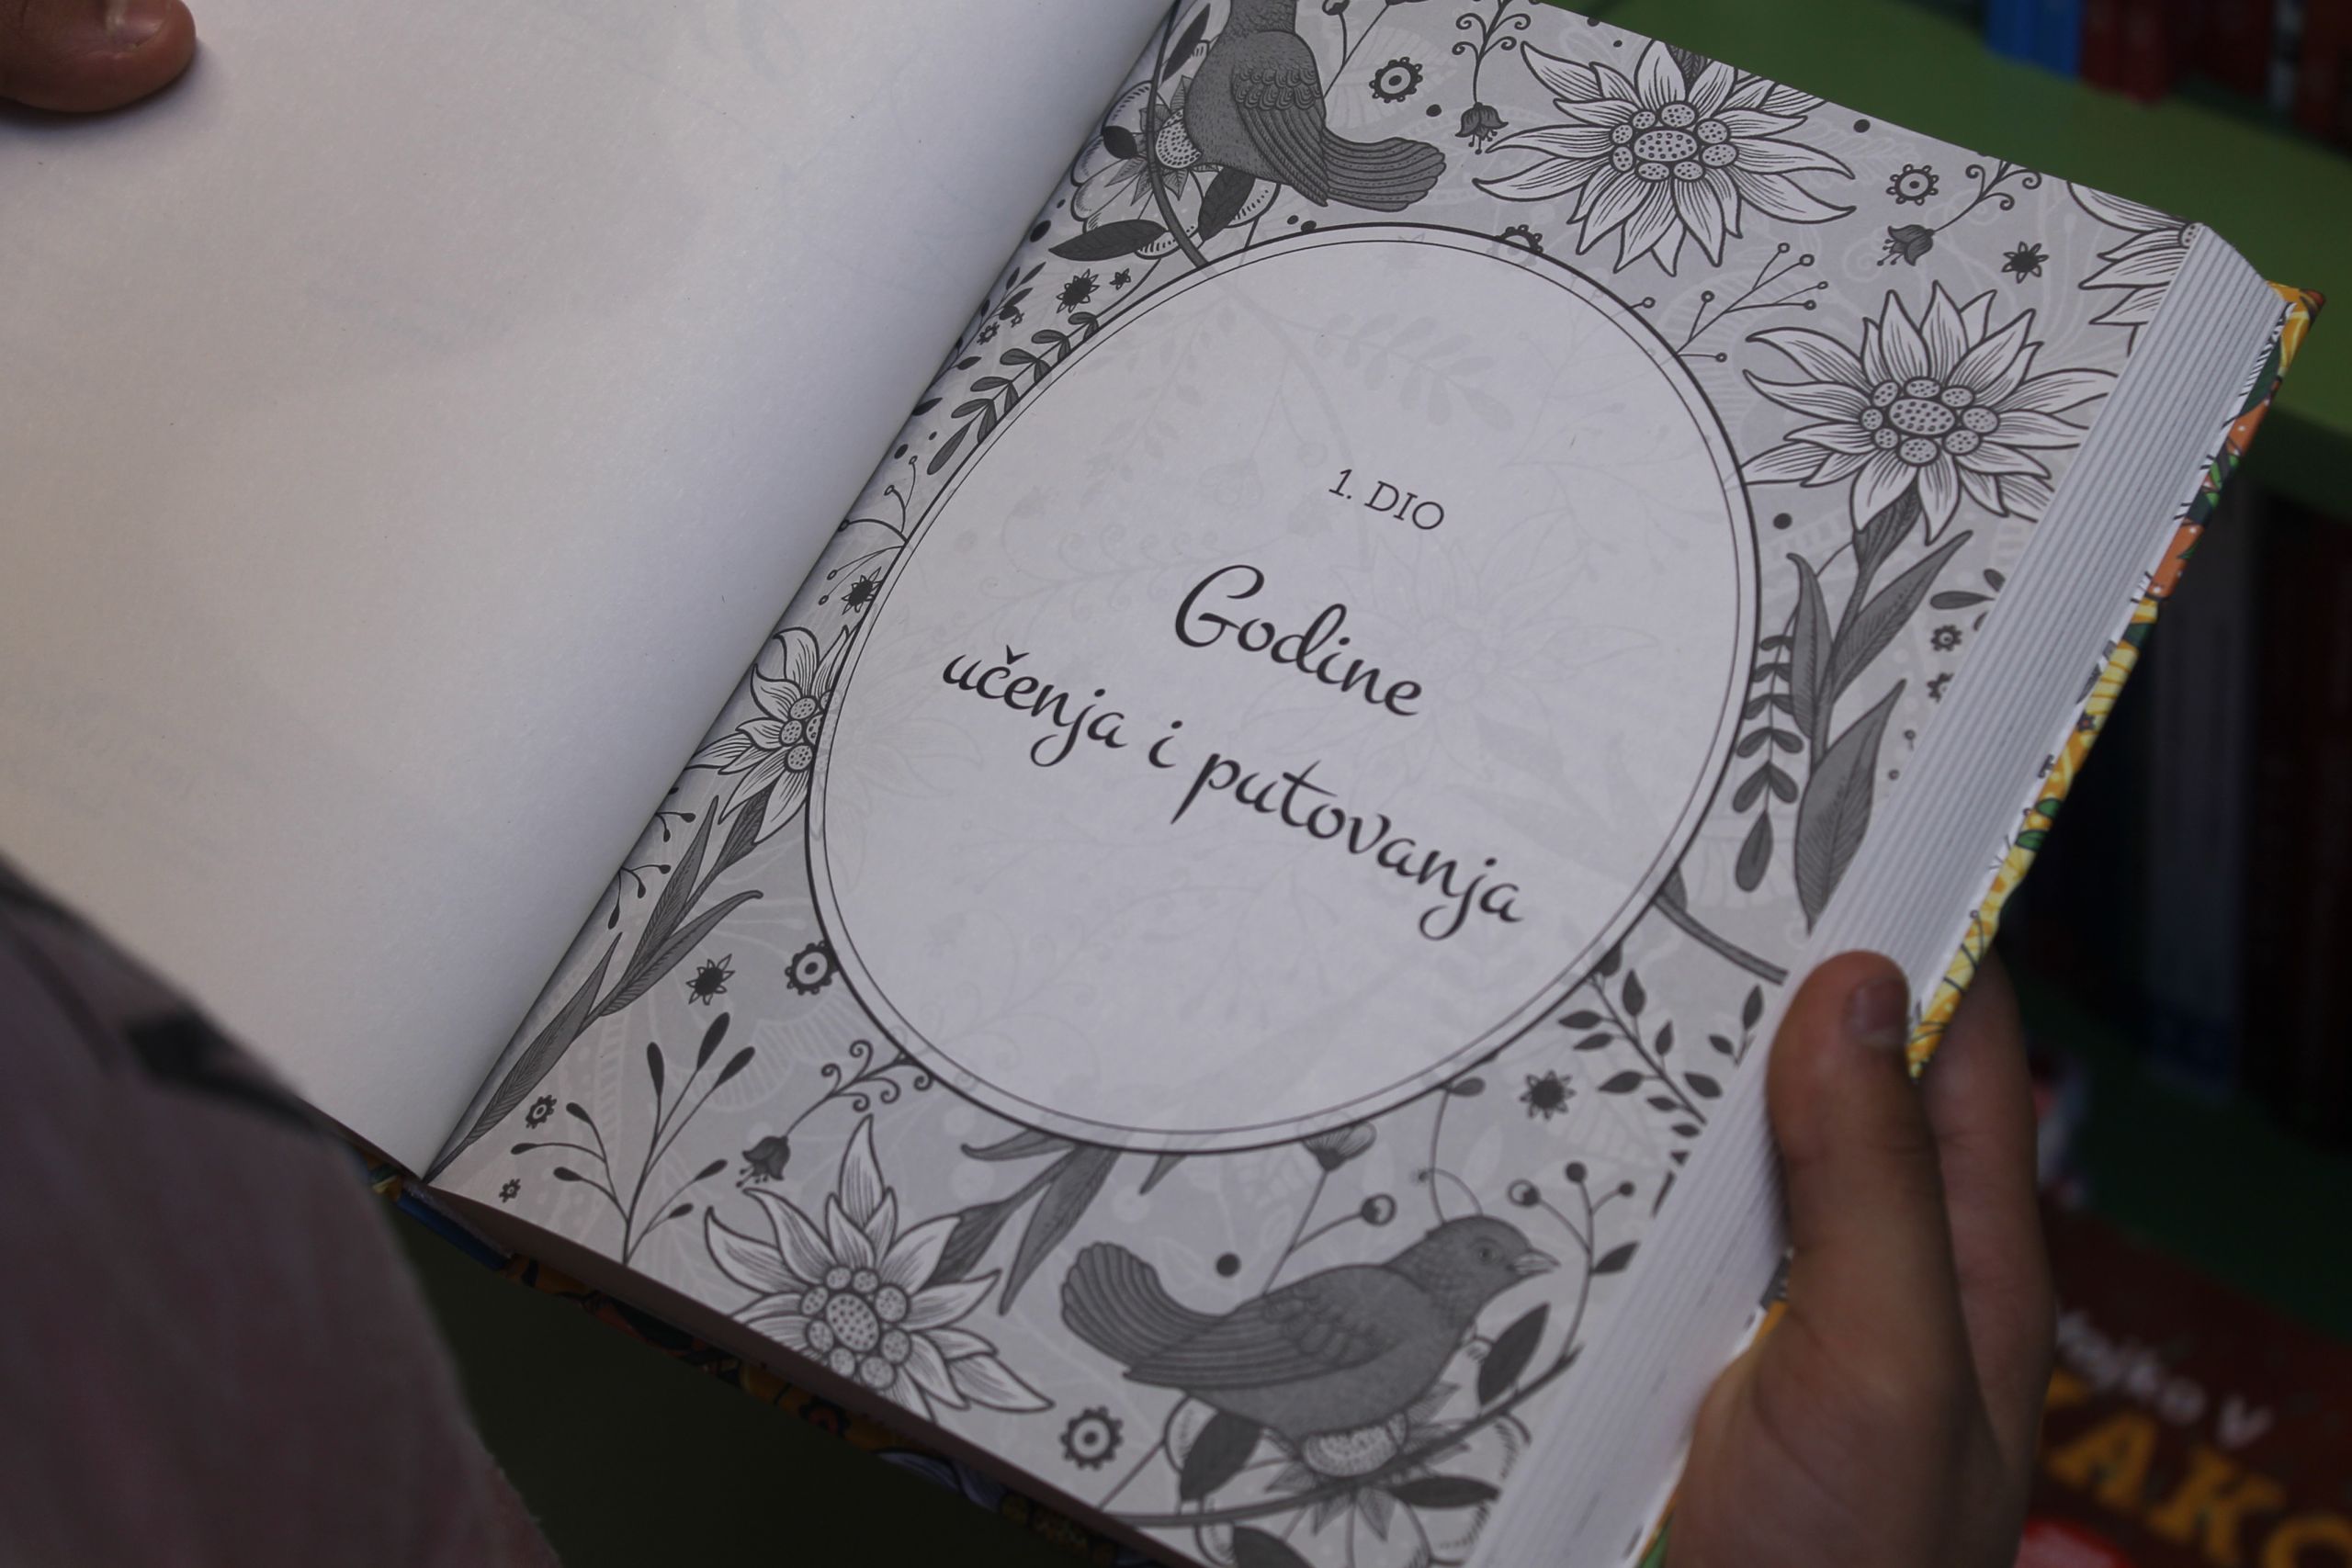 1. DIO
Godine
učenja i putovanja